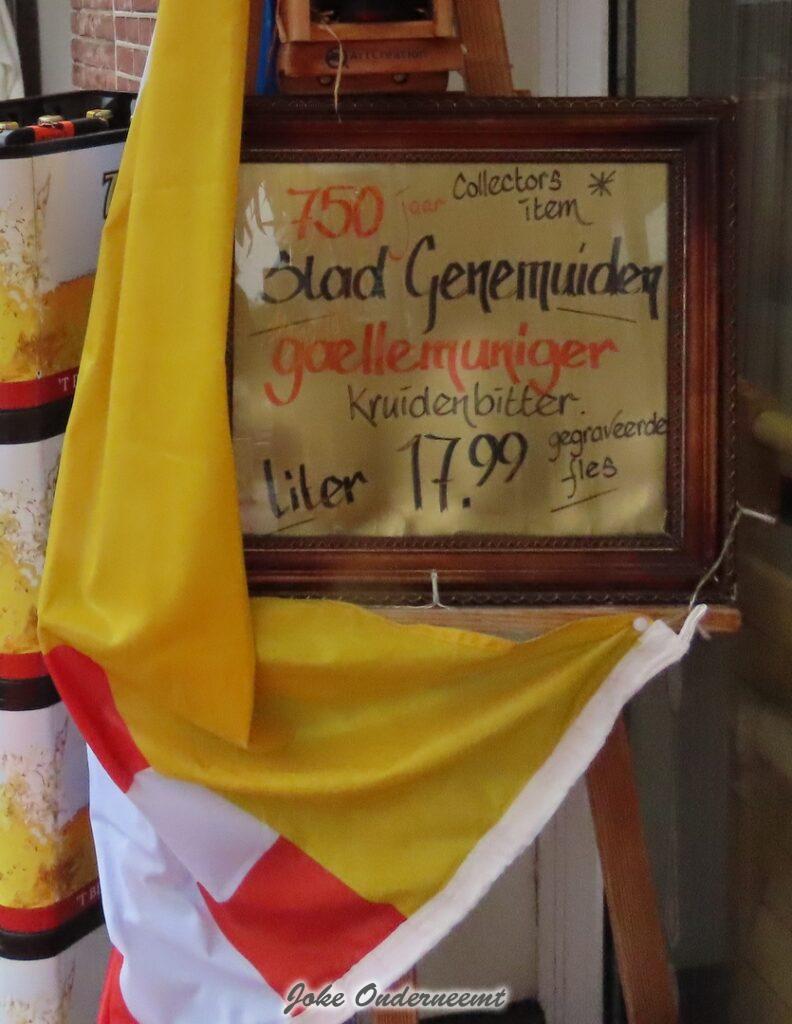 ArtCreation
750 jaar Collectors *
item
Stad Genemuiden
gaellemuniger
Kruidenbitter.
Liter 17.99 gegraveerde
fles
'T
'T B
Joke Onderneemt